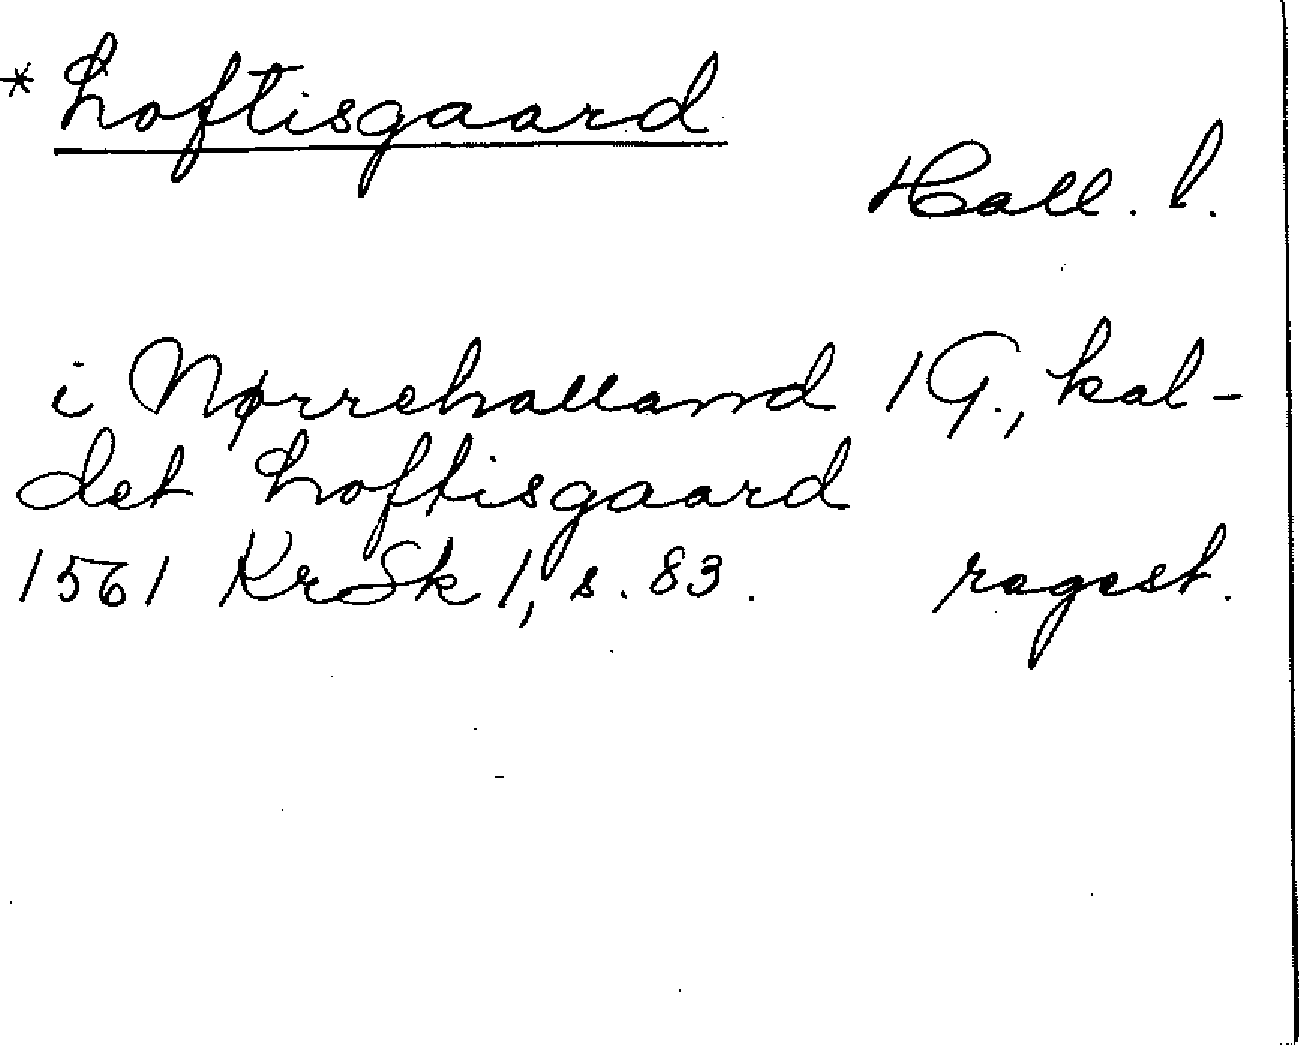 * Loftisgaard
Hall. l.
i Nørrehalland 1 G., kal-
det Loftisgaard
1561 KrSk 1, s. 83. regest.